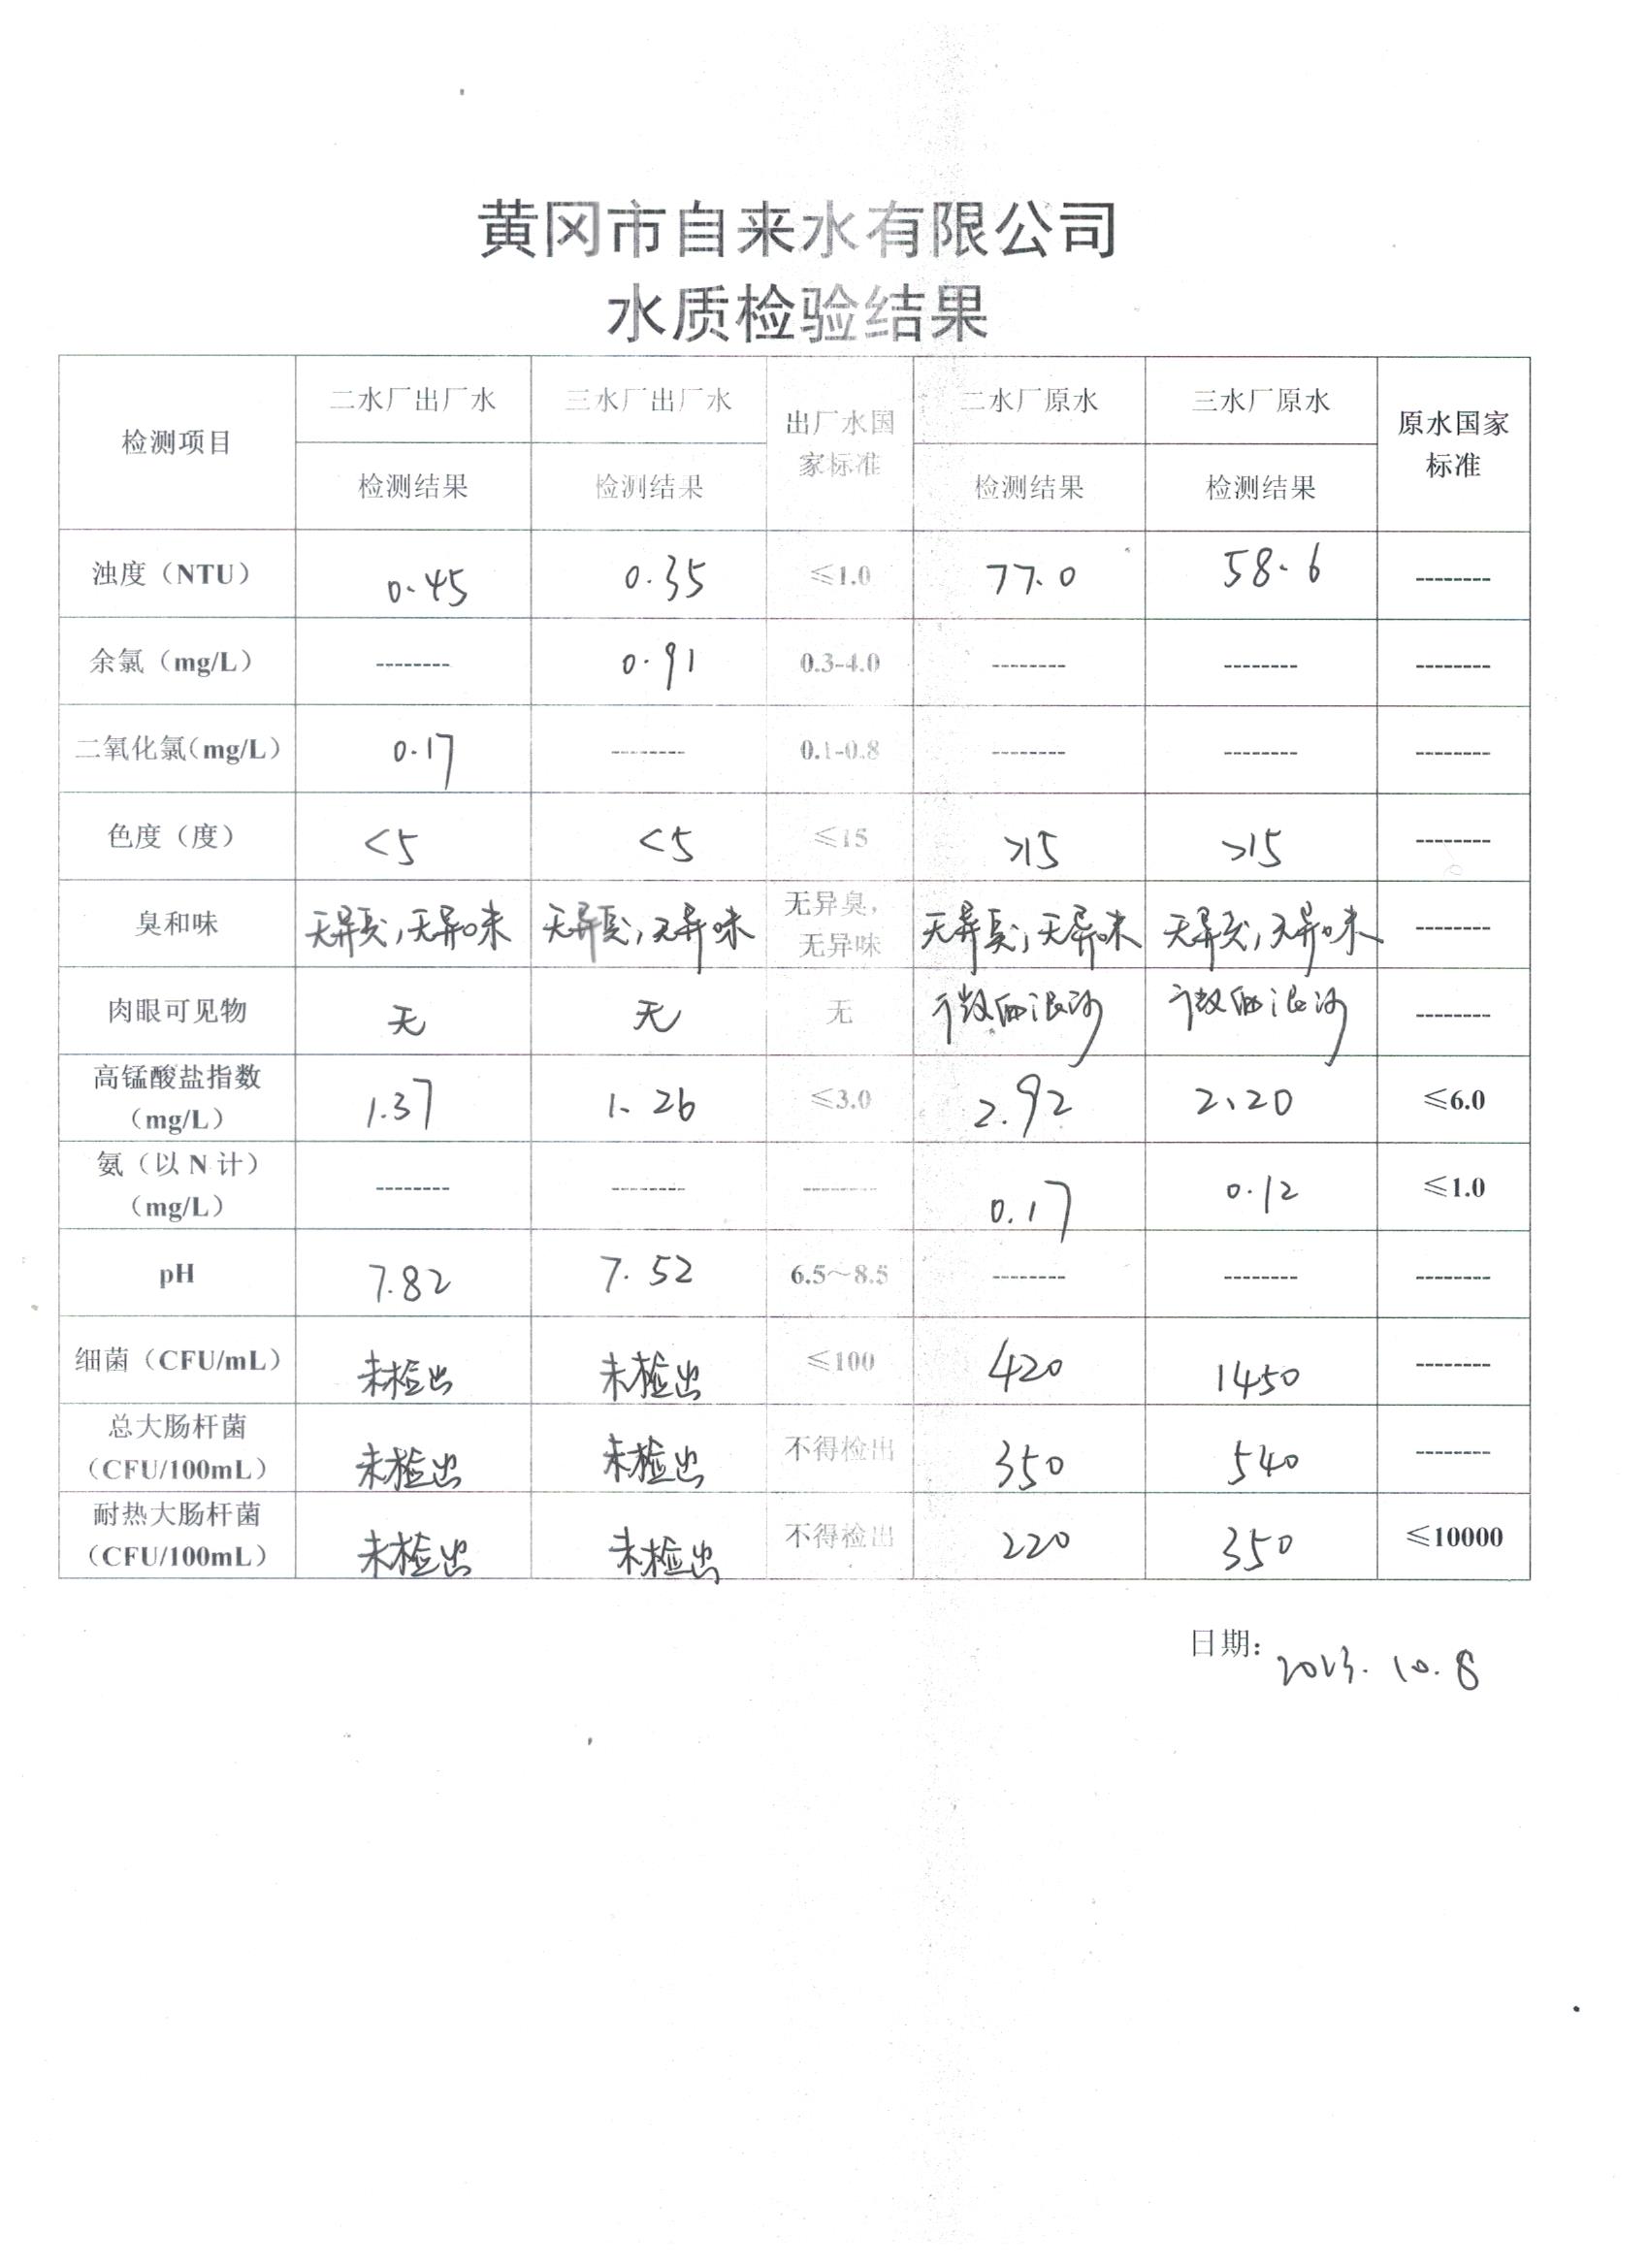 黄冈市自来水有限公司
水质检验结果
检测项目 二水厂出厂水 三水厂出厂水 出厂水国家标准 二水厂原水 三水厂原水 原水国家标准
检测结果 检测结果 检测结果 检测结果
浊度（NTU） 0.45 0.35 ≤1.0 77.0 58.6 --------
余氯（mg/L） -------- 0.91 0.3-4.0 -------- -------- --------
二氧化氯（mg/L） 0.17 -------- 0.1-0.8 -------- -------- --------
色度（度） <5 <5 ≤15 >15 >15 --------
臭和味 无异臭,无异味 无异臭,无异味 无异臭，无异味 无异臭,无异味 无异臭,无异味 --------
肉眼可见物 无 无 无 微细泥沙 微细泥沙 --------
高锰酸盐指数（mg/L） 1.37 1.26 ≤3.0 2.92 2.20 ≤6.0
氨（以N计）（mg/L） -------- -------- -------- 0.17 0.12 ≤1.0
pH 7.82 7.52 6.5～8.5 -------- -------- --------
细菌（CFU/mL） 未检出 未检出 ≤100 420 1450 --------
总大肠杆菌（CFU/100mL） 未检出 未检出 不得检出 350 540 --------
耐热大肠杆菌（CFU/100mL） 未检出 未检出 不得检出 220 350 ≤10000
日期: 2023.10.8